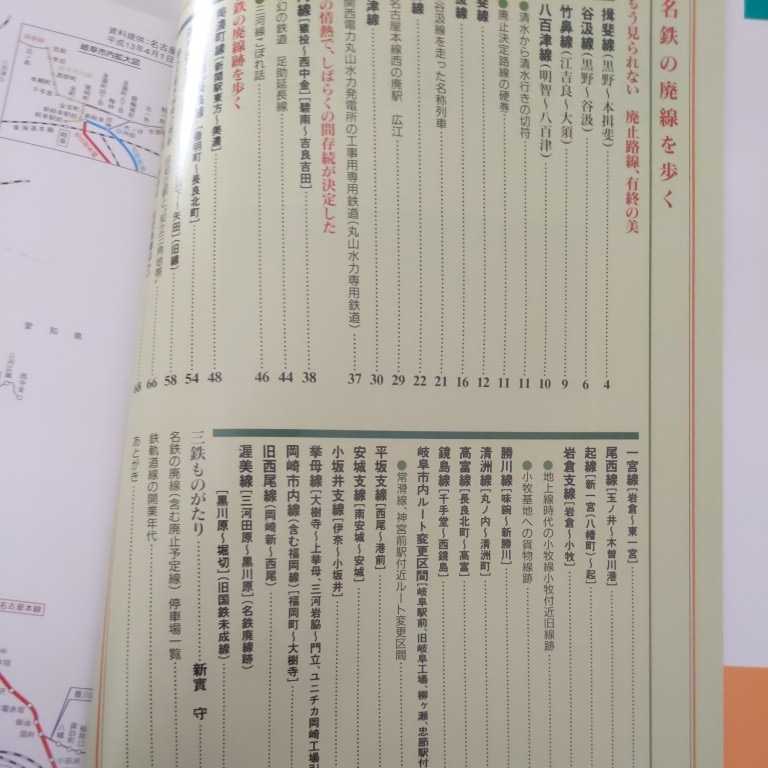 名鉄の廃線を歩く
もう見られない 廃止路線、有終の美
揖斐線（黒野～本揖斐） 4
谷汲線（黒野～谷汲） 6
竹鼻線（江吉良～大須） 9
八百津線（明智～八百津） 10
●清水から清水行きの切符 11
●廃止決定路線の硬券 11
斐線 12
汲線 16
谷汲線を走った名称列車 21
線 22
名古屋本線西の廃駅 広江 29
津線 30
関西電力丸山水力発電所の工事用専用鉄道（丸山水力専用鉄道） 37
の情熱で、しばらくの間存続が決定した
線［猿投～西中金］［碧南～吉良吉田］ 38
幻の鉄道 足助延長線 44
三河線こぼれ話 46
鉄の廃線跡を歩く
美濃町線［新関駅東方～美濃］ 48
～長良北町］ 54
～矢田］（旧線） 58
66
68
一宮線［岩倉～東一宮］
尾西線［玉ノ井～木曽川港］
起線［新一宮（八幡町）～起］
岩倉支線［岩倉～小牧］
●地上線時代の小牧線小牧付近旧線跡
●小牧基地への貨物線跡
勝川線［味鋺～新勝川］
清洲線［丸ノ内～清洲町］
高富線［長良北町～高富］
鏡島線［千手堂～西鏡島］
岐阜市内ルート変更区間［岐阜駅前、旧岐阜工場、柳ヶ瀬、忠節駅付
●常滑線、神宮前駅付近ルート変更区間
平坂支線［西尾～港前］
安城支線［南安城～安城］
小坂井支線［伊奈～小坂井］
挙母線［大樹寺～上挙母、三河岩脇～門立、ユニチカ岡崎工場引
岡崎市内線（含む福岡線）［福岡町～大樹寺］
旧西尾線（岡崎新～西尾）
渥美線［三河田原～黒川原］（名鉄廃線跡）
［黒川原～堀切］（旧国鉄未成線）
三鉄ものがたり 新實 守
名鉄の廃線（含む廃止予定線）停車場一覧
鉄軌道線の開業年代
あとがき
資料提供：名古屋
平成13年4月1日
岐阜市内拡大図
愛知県
名古屋本線